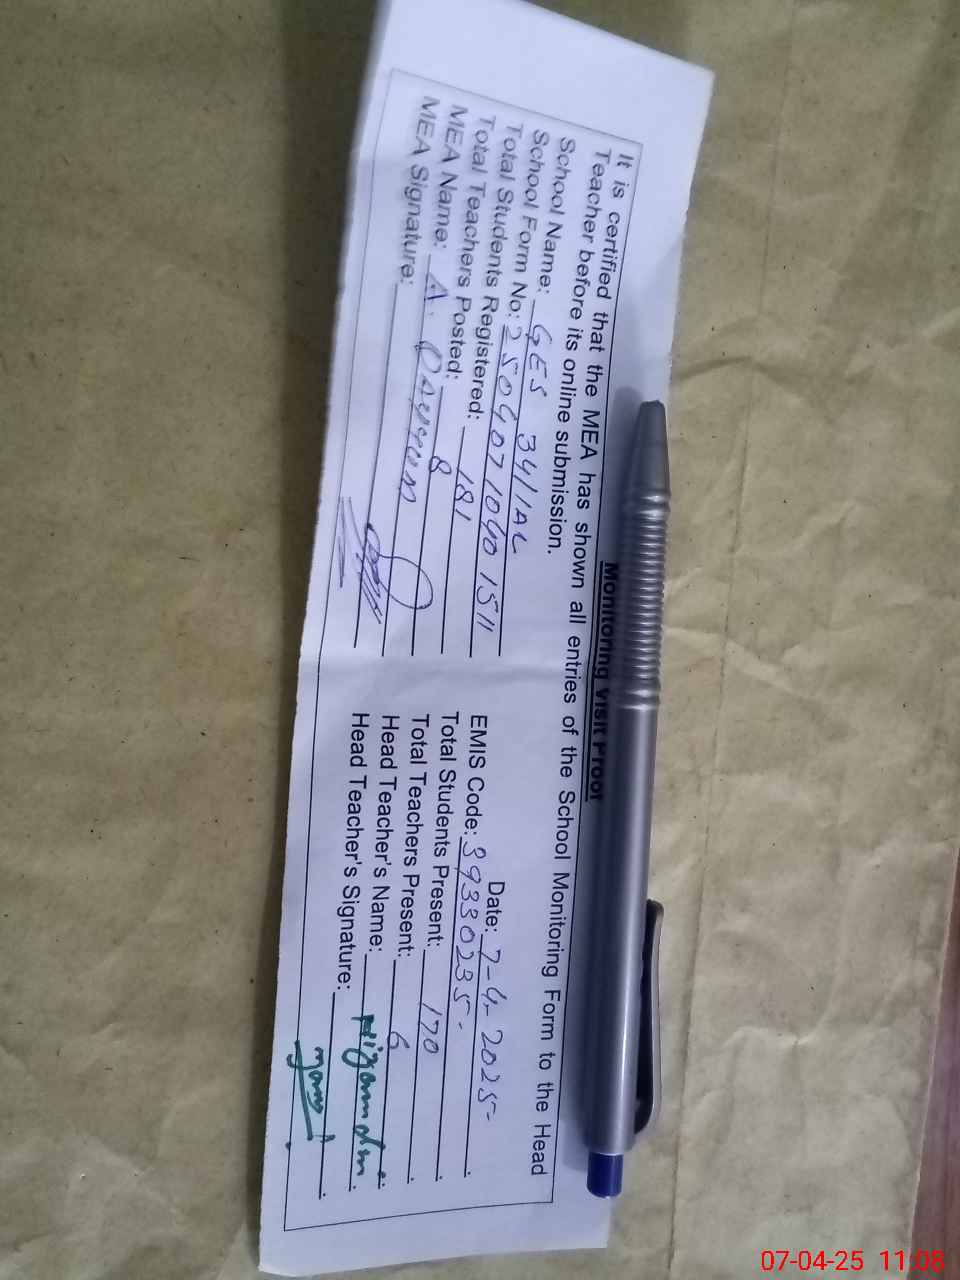 Monitoring Visit Proof
It is certified that the MEA has shown all entries of the School Monitoring Form to the Head
Teacher before its online submission.
Date: 7-4-2025-
School Name: GES 341/AL
EMIS Code: 39330235-
School Form No: 2504071040 1511
Total Students Present: 170
Total Students Registered: 181
Total Teachers Present: 6
Total Teachers Posted: 8
Head Teacher's Name:
MEA Name: A.
Head Teacher's Signature:
MEA Signature:
07-04-25 11:08